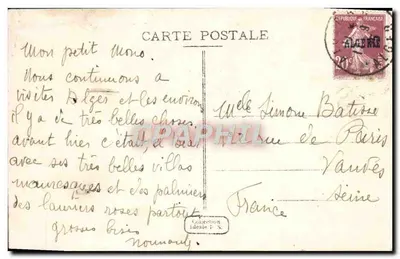 CARTE POSTALE
REPUBLIQUE FRANÇAISE
ALGÉRIE
Mon petit Mono.
Nous continuons a
visiter Alger et les environs
il y a de très belles choses
avant hier c'était
avec ses très belles villas
mauresques et des palmiers
des lauriers roses partout.
grosses bises
Mlle Simone
rue de Paris
Vanves
Seine
France
Collection
Idéale P. S.